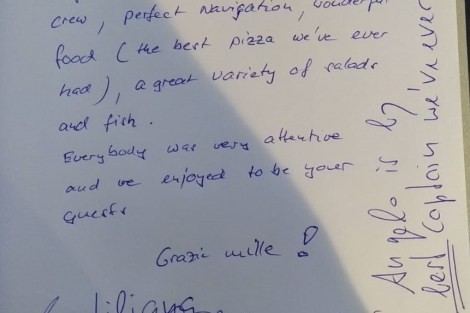 crew, perfect navigation, wonderful
food (the best pizza we've ever
had), a great variety of salads
and fish.
Everybody was very attentive
and we enjoyed to be your
guests
Grazie mille!
Liliana
Angelo is by
best captain we've ever